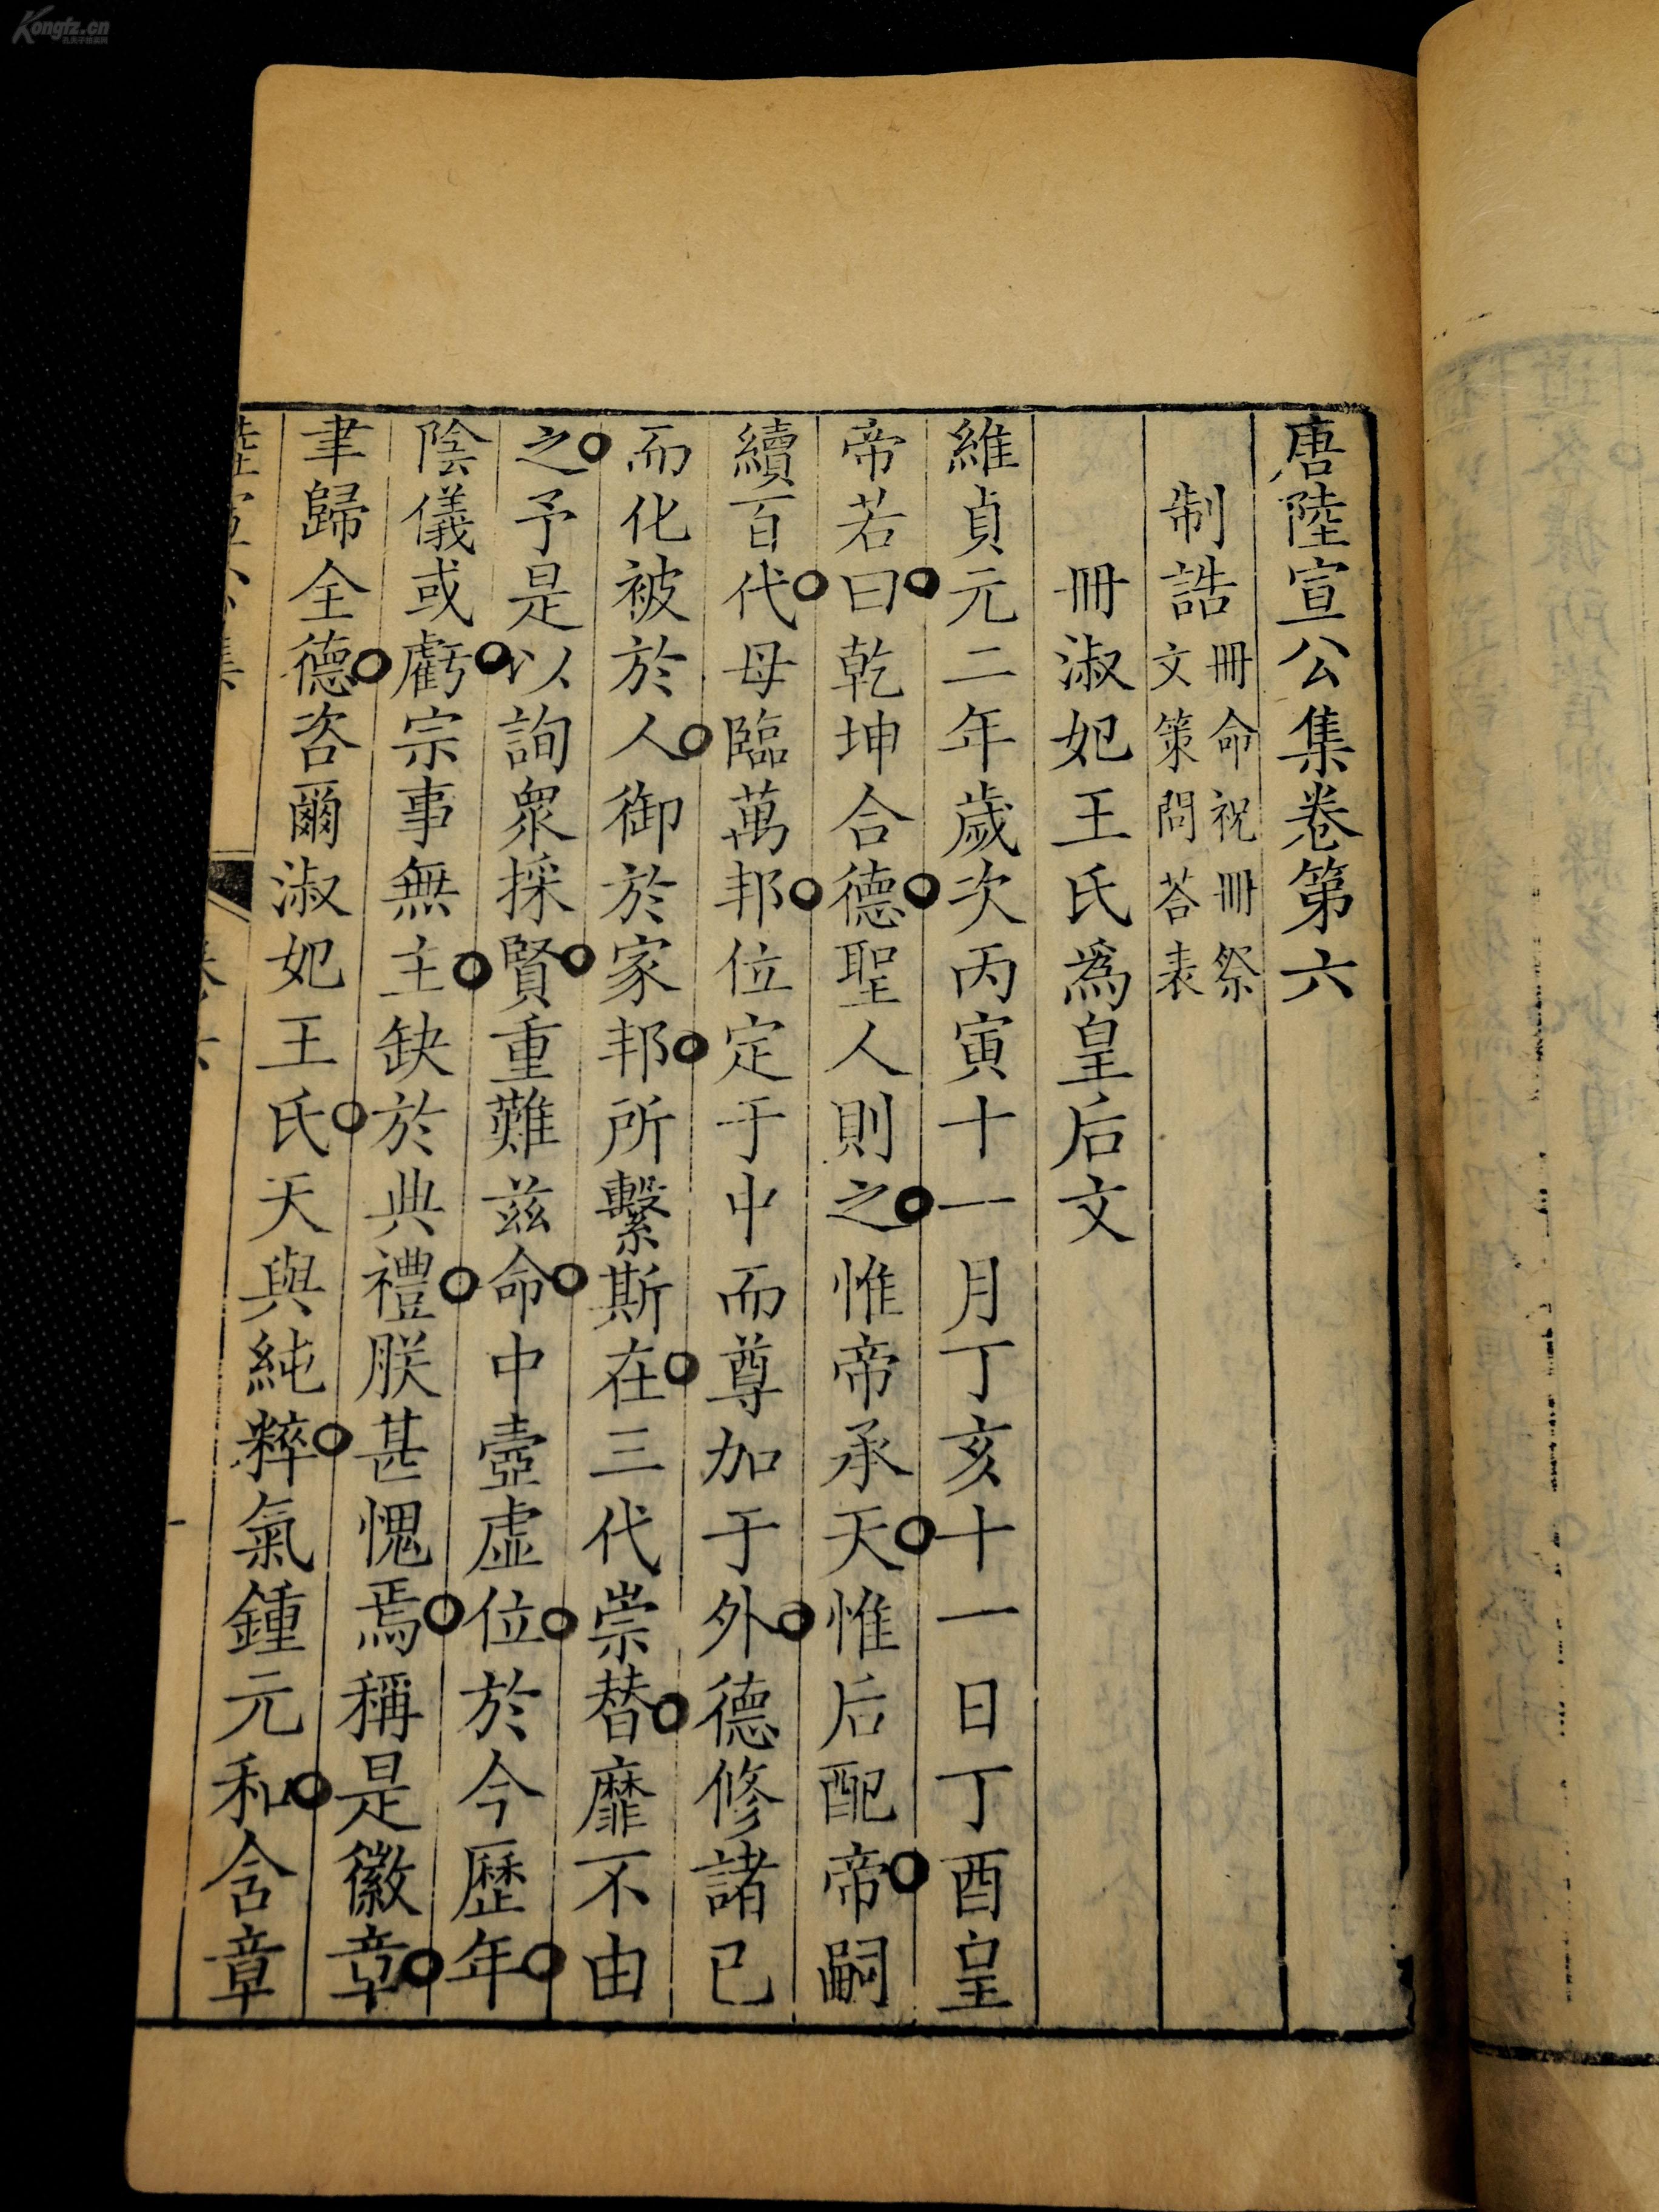 唐陸宣公集卷第六
制誥冊命祝冊祭文策問荅表
冊淑妃王氏爲皇后文
維貞元二年歲次丙寅十一月丁亥十一日丁酉皇
帝若曰乾坤合德聖人則之惟帝承天惟后配帝嗣
續百代母臨萬邦位定于中而尊加于外德修諸已
而化被於人御於家邦所繫斯在三代崇替靡不由
之予是以詢衆採賢重難茲命中壼虛位於今歷年
陰儀或虧宗事無主缺於典禮朕甚愧焉稱是徽章
聿歸全德咨爾淑妃王氏天與純粹氣鍾元和含章
Kongfz.cn